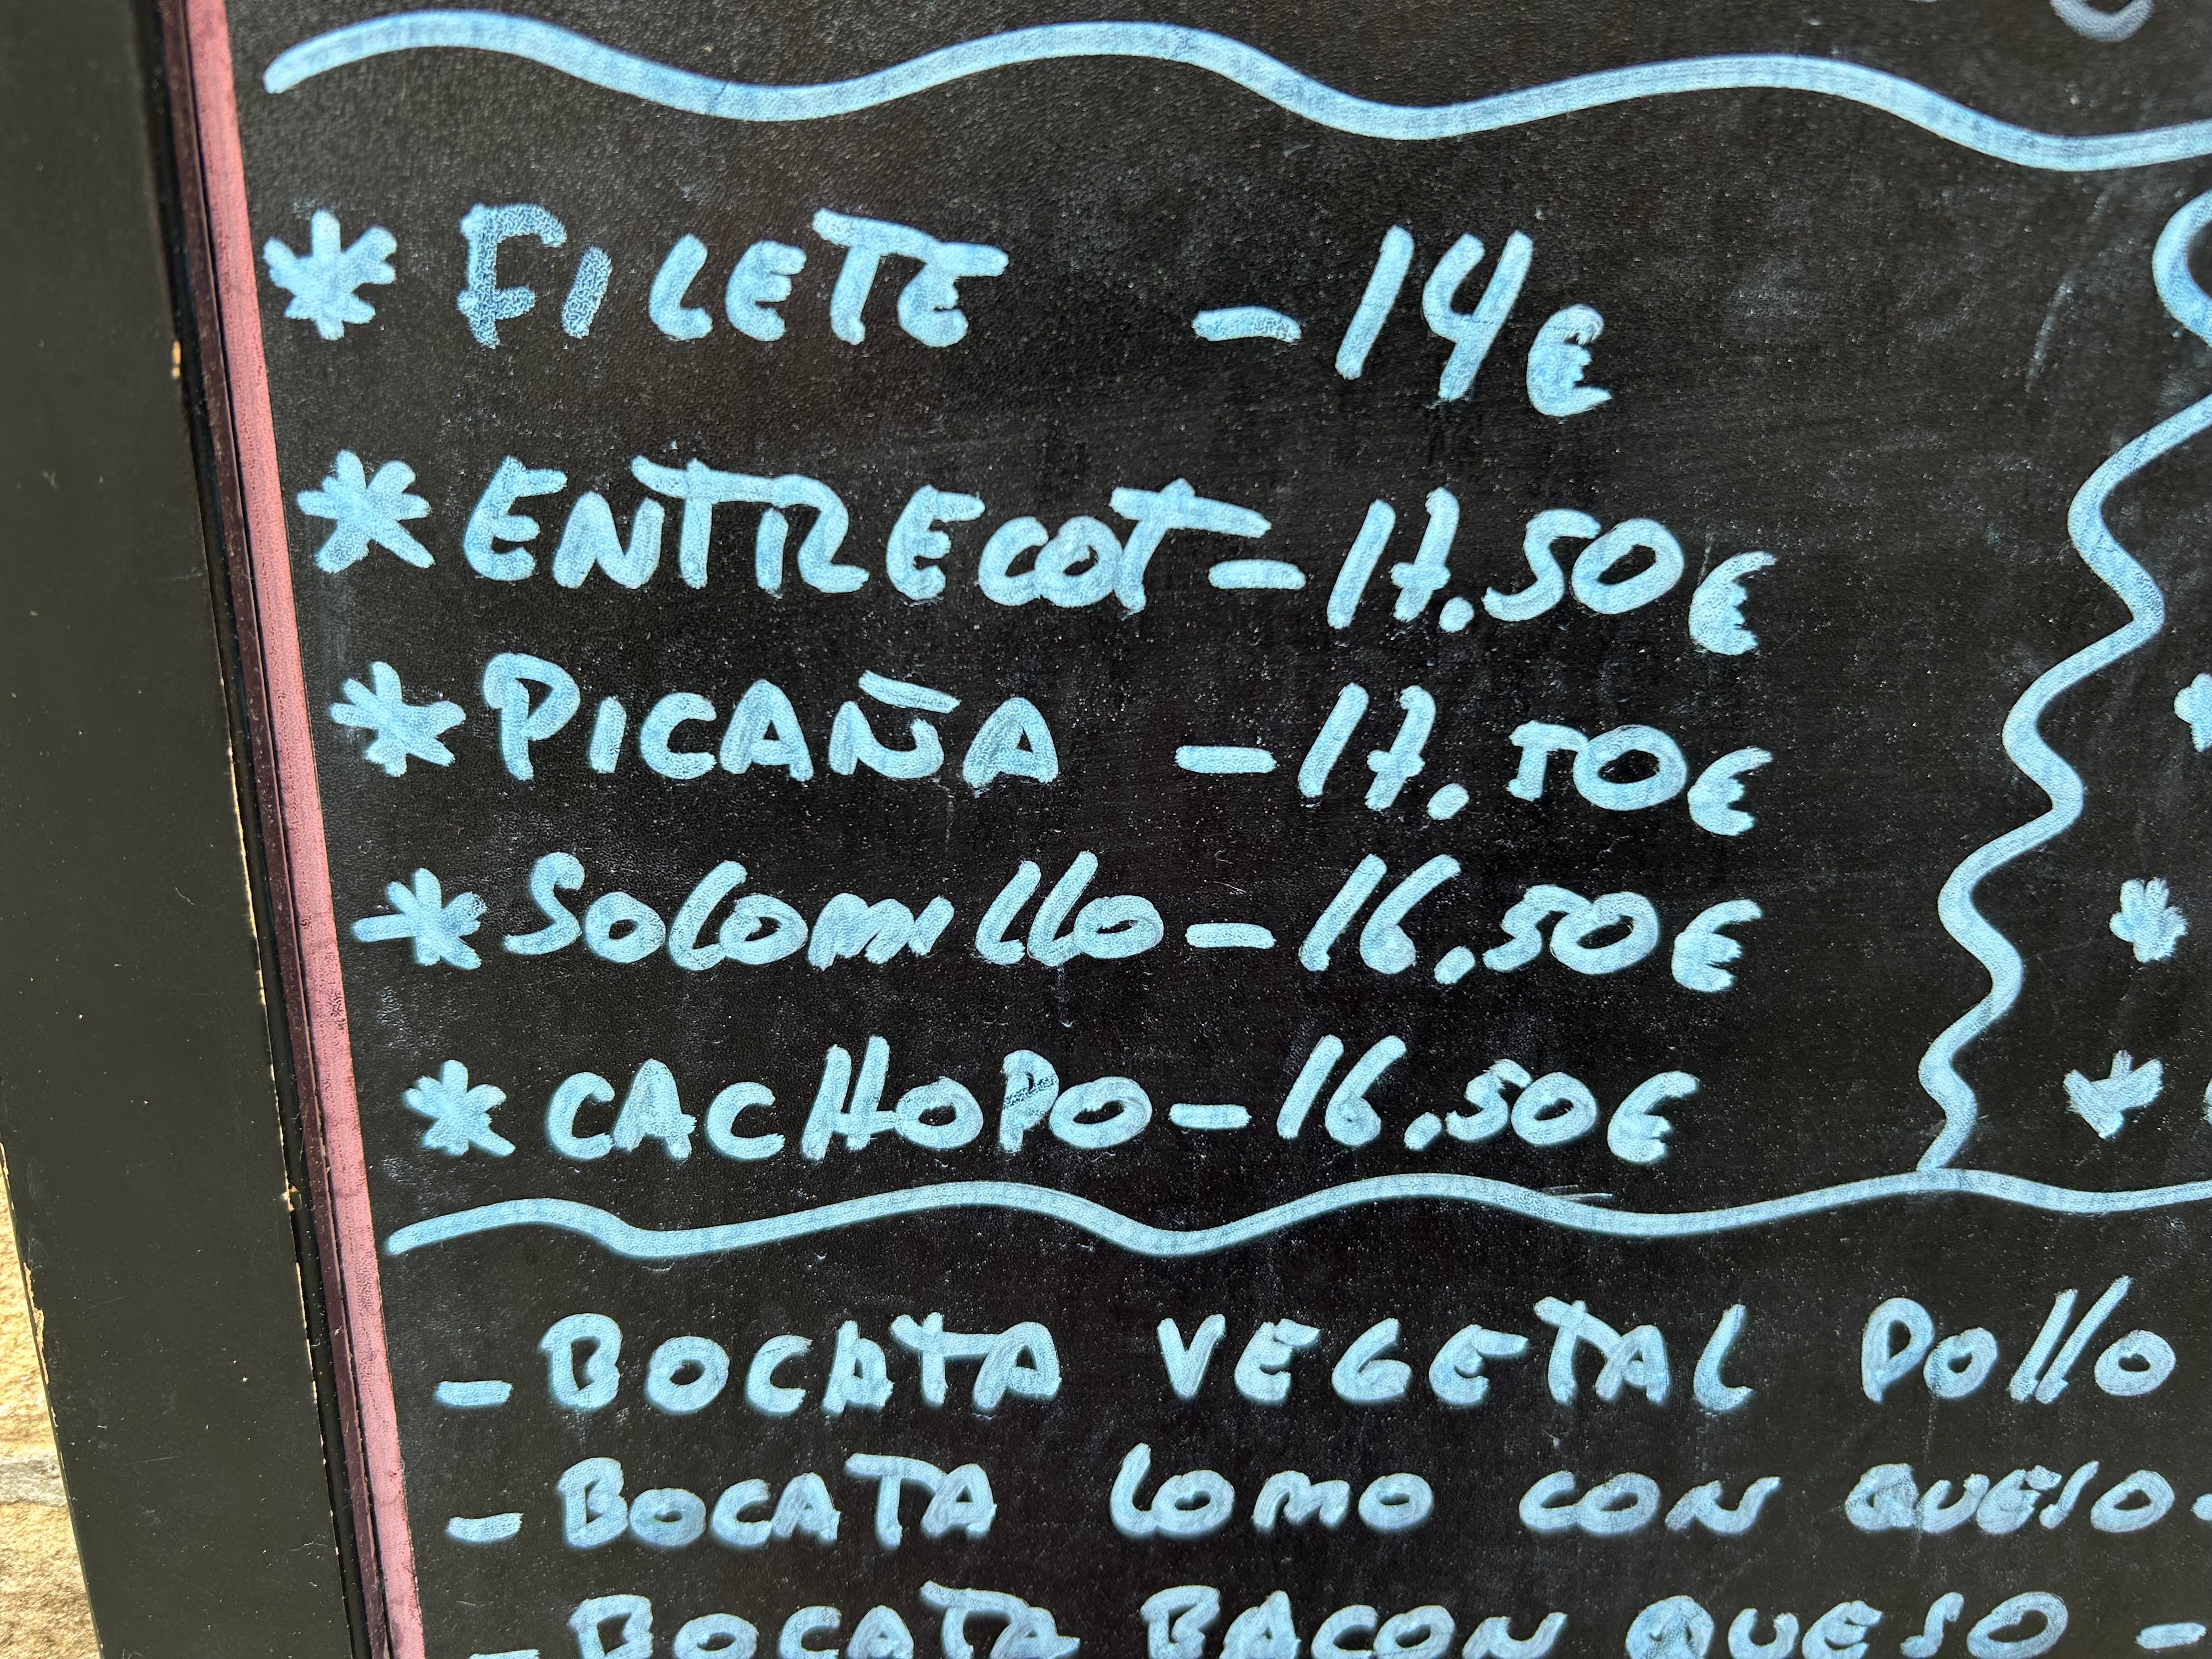 * FILETE - 14€
* ENTRECOT - 17.50€
* PICAÑA - 17.50€
* SOLOMILLO - 16,50€
* CACHOPO - 16,50€
- BOCATA VEGETAL POLLO
- BOCATA LOMO CON QUESO -
- BOCATA BACON QUESO -